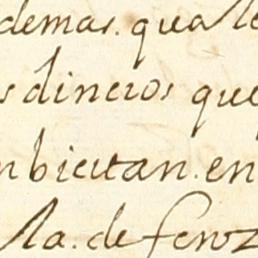 demas. quale
s dineros que
nbiertan. en
la. de feroz